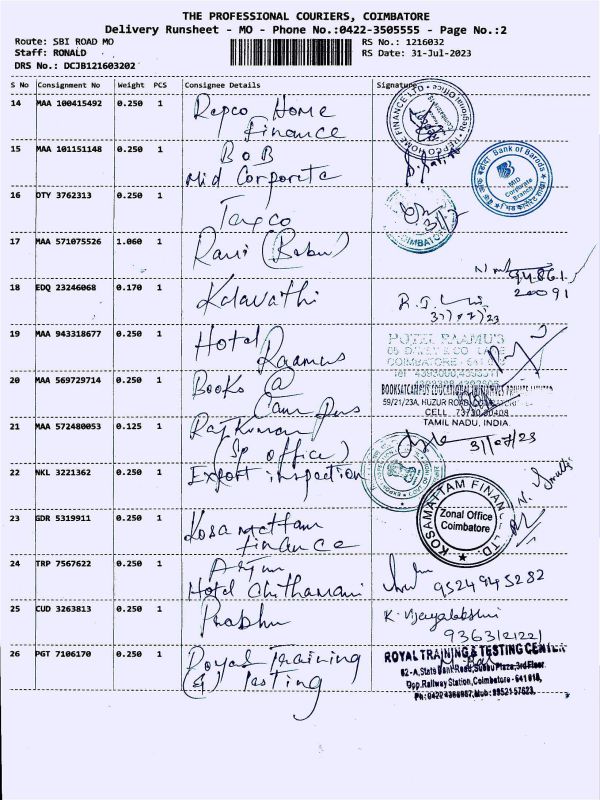 THE PROFESSIONAL COURIERS, COIMBATORE
Delivery Runsheet - MO - Phone No.:0422-3505555 - Page No.:2
Route: SBI ROAD MO
RS No.: 1216032
Staff: RONALD
RS Date: 31-Jul-2023
DRS No.: DCJB121603202
S No Consignment No Weight PCS Consignee Details Signature
14 MAA 100415492 0.250 1 Repco Home
Finance
15 MAA 101151148 0.250 1 BOB
Mid Corporate
Bank of Baroda
MID
Corporate
Branch
16 DTY 3762313 0.250 1
17 MAA 571075526 1.060 1 Ravi (Babu)
94861
20091
18 EDQ 23246068 0.170 1 Kalavathi
31/07/23
19 MAA 943318677 0.250 1 Hotel
Raamus
HOTEL RAAMUS
COIMBATORE - 641
20 MAA 569729714 0.250 1 Books @
Campus
BOOKSATCAMPUS EDUCATIONAL INITIATIVES PRIVATE LIMITED
59/21/23A, HUZUR ROAD
CELL
TAMIL NADU, INDIA
21 MAA 572480053 0.125 1 Rajkumar
(Sp office)
31/07/23
22 NKL 3221362 0.250 1 Export inspection
23 GDR 5319911 0.250 1 Kosamattam
finance
KOSAMATTAM FINANCE LTD.
Zonal Office
Coimbatore
24 TRP 7567622 0.250 1 Arjun
Hotel Chithamani
9524945282
25 CUD 3263813 0.250 1 Prabhu
K. Vijayalakshmi
9363121221
26 PGT 7106170 0.250 1 Royal Training
& Testing
ROYAL TRAINING & TESTING CENTER
82-A, State Bank Road, Subbu Plaza, 3rd Floor
Opp. Railway Station, Coimbatore - 641 018,